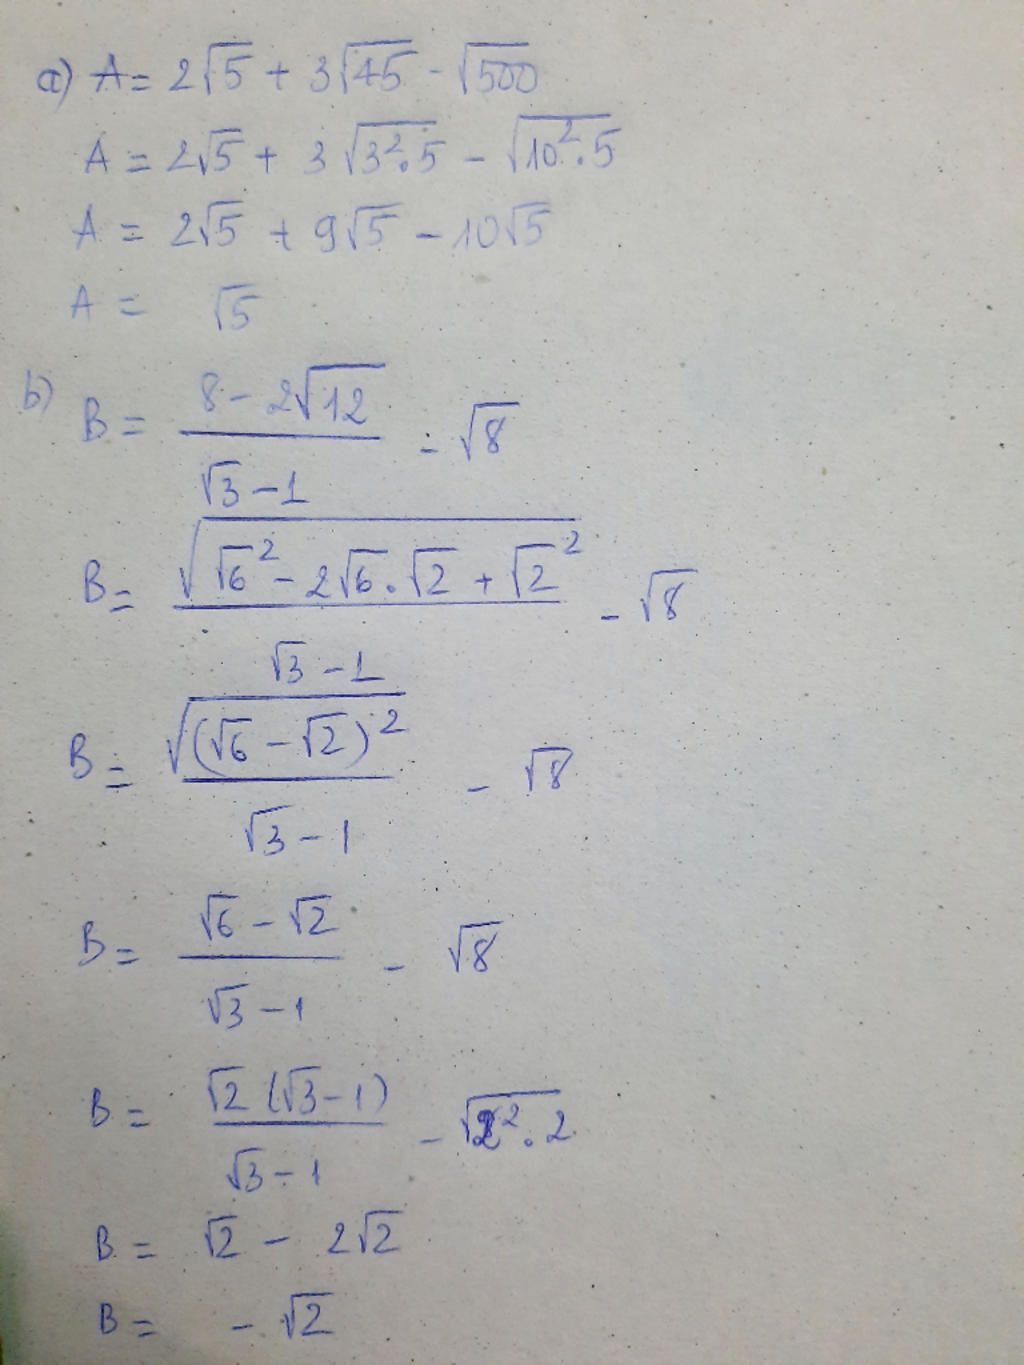 a) A = 2√5 + 3√45 - √500
A = 2√5 + 3√(3².5) - √(10².5)
A = 2√5 + 9√5 - 10√5
A = √5
b) B = (8 - 2√12)/(√3 - 1) - √8
B = √(√6² - 2√6.√2 + √2²)/(√3 - 1) - √8
B = √((√6 - √2)²)/(√3 - 1) - √8
B = (√6 - √2)/(√3 - 1) - √8
B = √2(√3 - 1)/(√3 - 1) - √(2².2)
B = √2 - 2√2
B = -√2